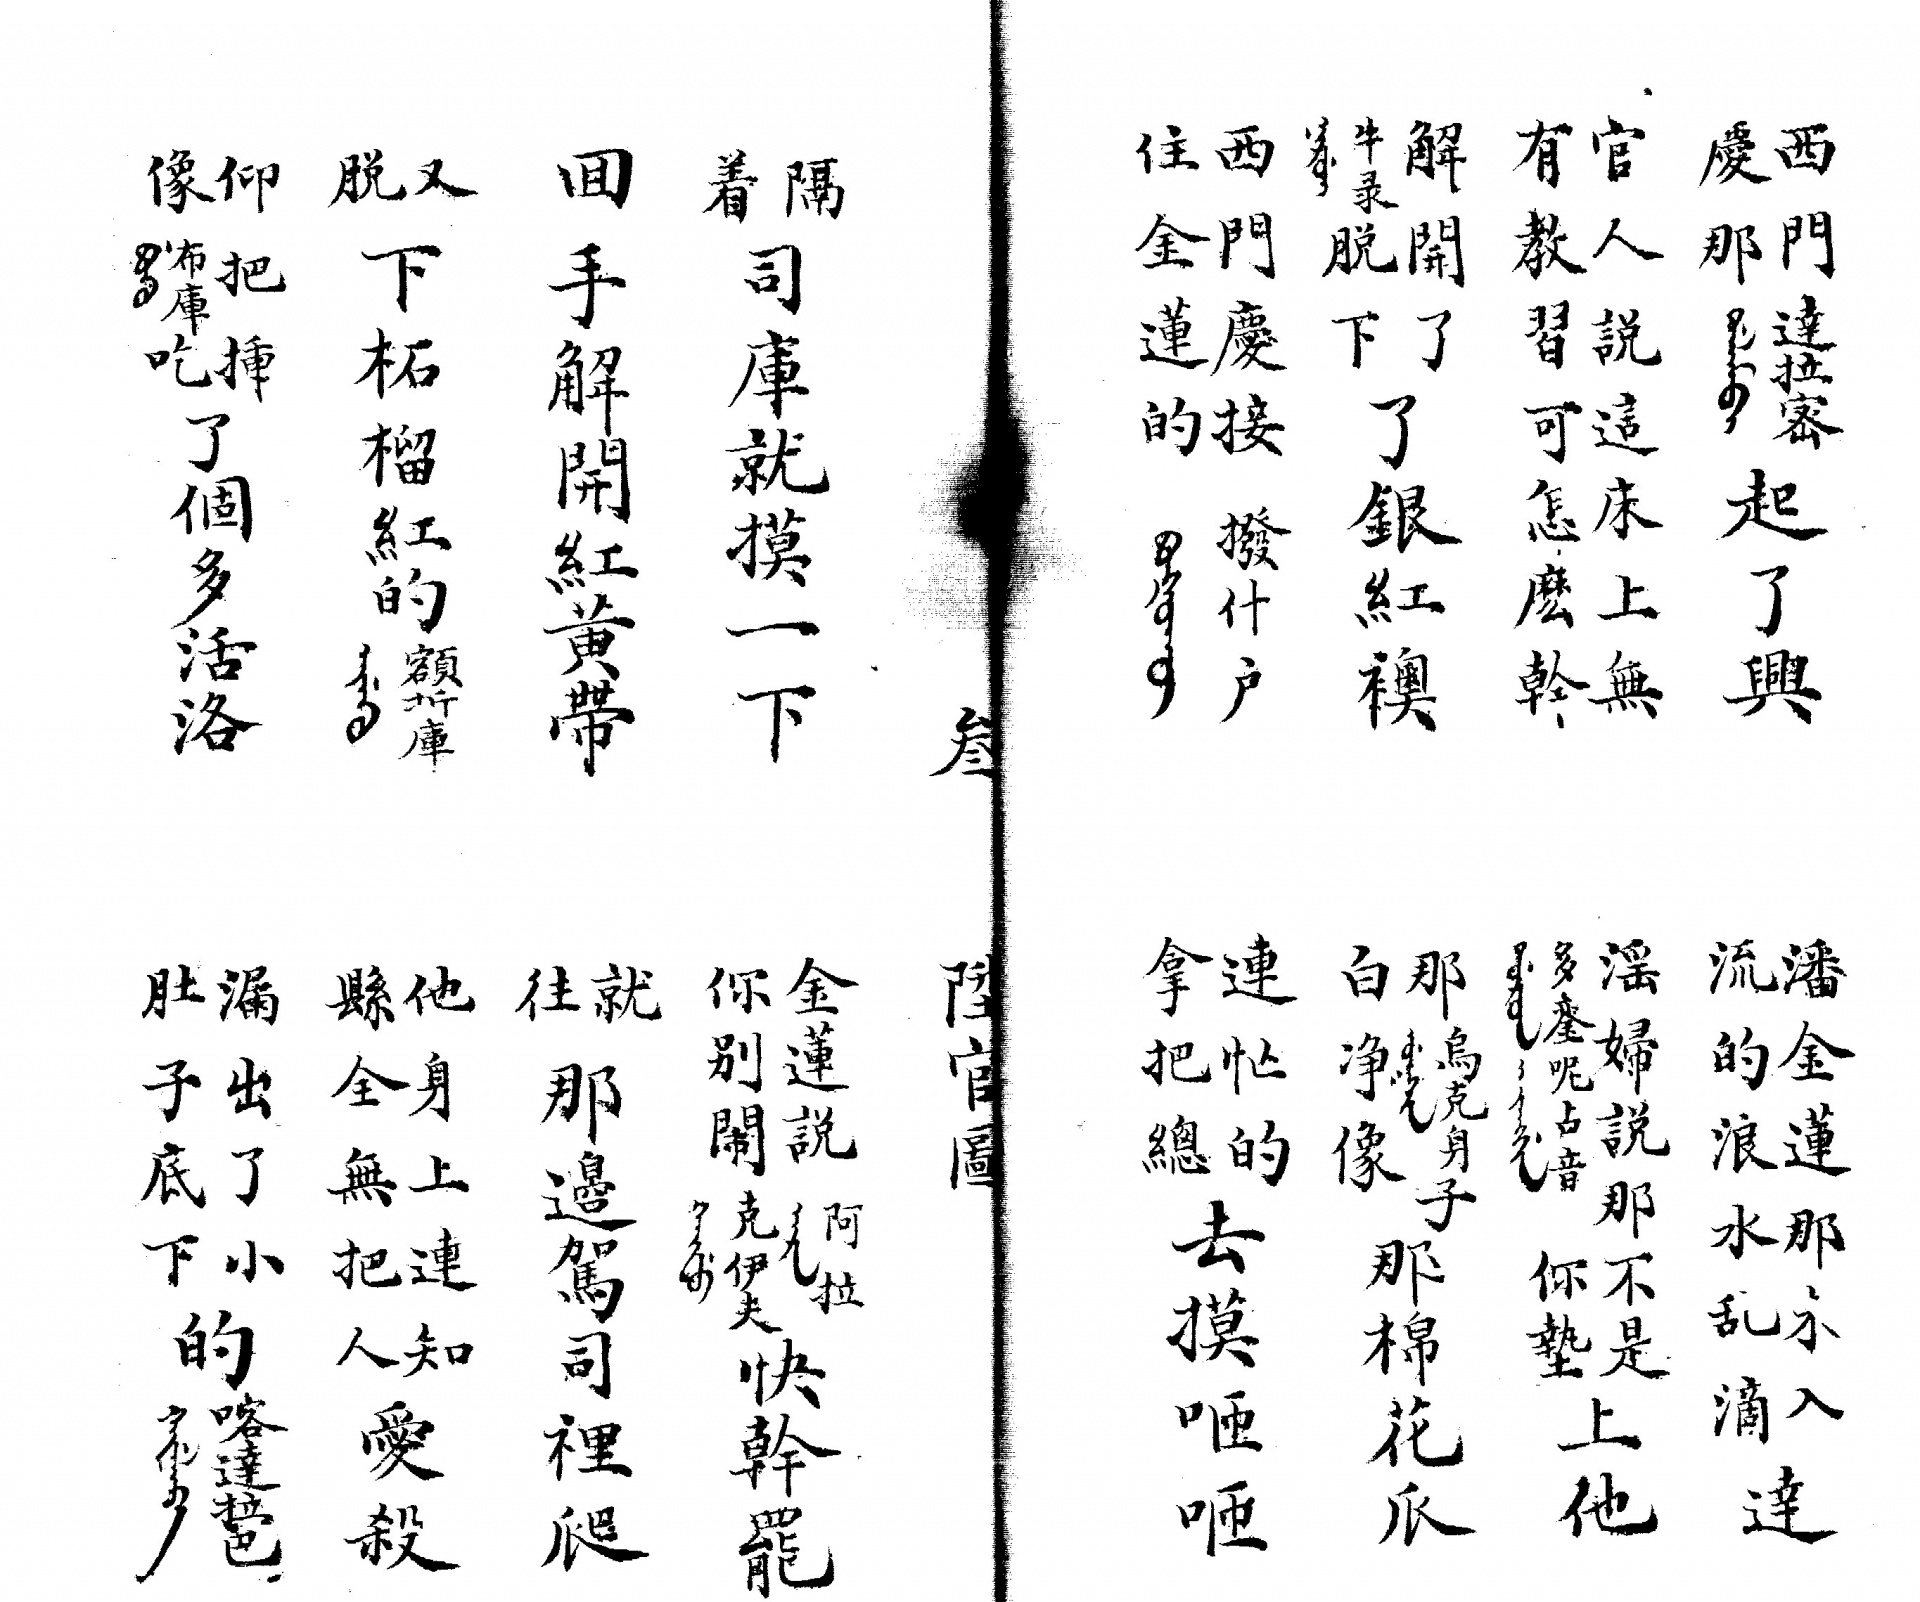 西門慶那達拉密起了興
潘金蓮那示入流的浪水乱滴達
官人説這床上無有教習可怎麽幹
淫婦説那不是多鑾呢占音你墊上他
解開了牛录脱下了銀紅襖
那烏克身子白净像那棉花瓜
西門慶接住金蓮的撥什户
連忙的拿把總去摸咂咂
陞官圖
叁
隔着司庫就摸一下
金蓮説你别鬧阿拉克伊夫快幹罷
回手解開紅黄帶
就往那邊駕司裡爬
又脱下柘榴紅的額折庫
他身上連知縣全無把人愛殺
仰把揰像布庫吃了個多活洛
漏出了小肚子底下的喀達拉巴